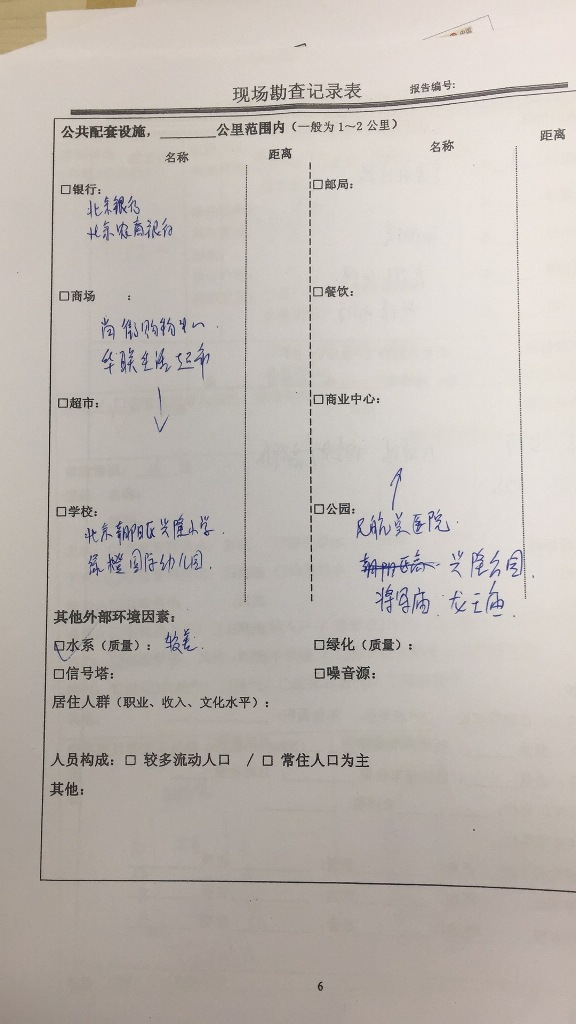 现场勘查记录表
报告编号:
公共配套设施，________公里范围内（一般为1～2公里）
名称 距离 名称 距离
□银行：
北京银行
北京农商银行
□邮局：
□商场 ：
尚街购物中心
华联生活超市
□餐饮：
□超市：
□商业中心：
□学校：
北京朝阳区兴隆小学.
绿橙国际幼儿园.
□公园：
民航总医院.
兴隆公园.
将军庙. 龙王庙.
其他外部环境因素：
□水系（质量）： 较差.
□绿化（质量）：
□信号塔：
□噪音源：
居住人群（职业、收入、文化水平）：
人员构成：□ 较多流动人口 / □ 常住人口为主
其他：
6